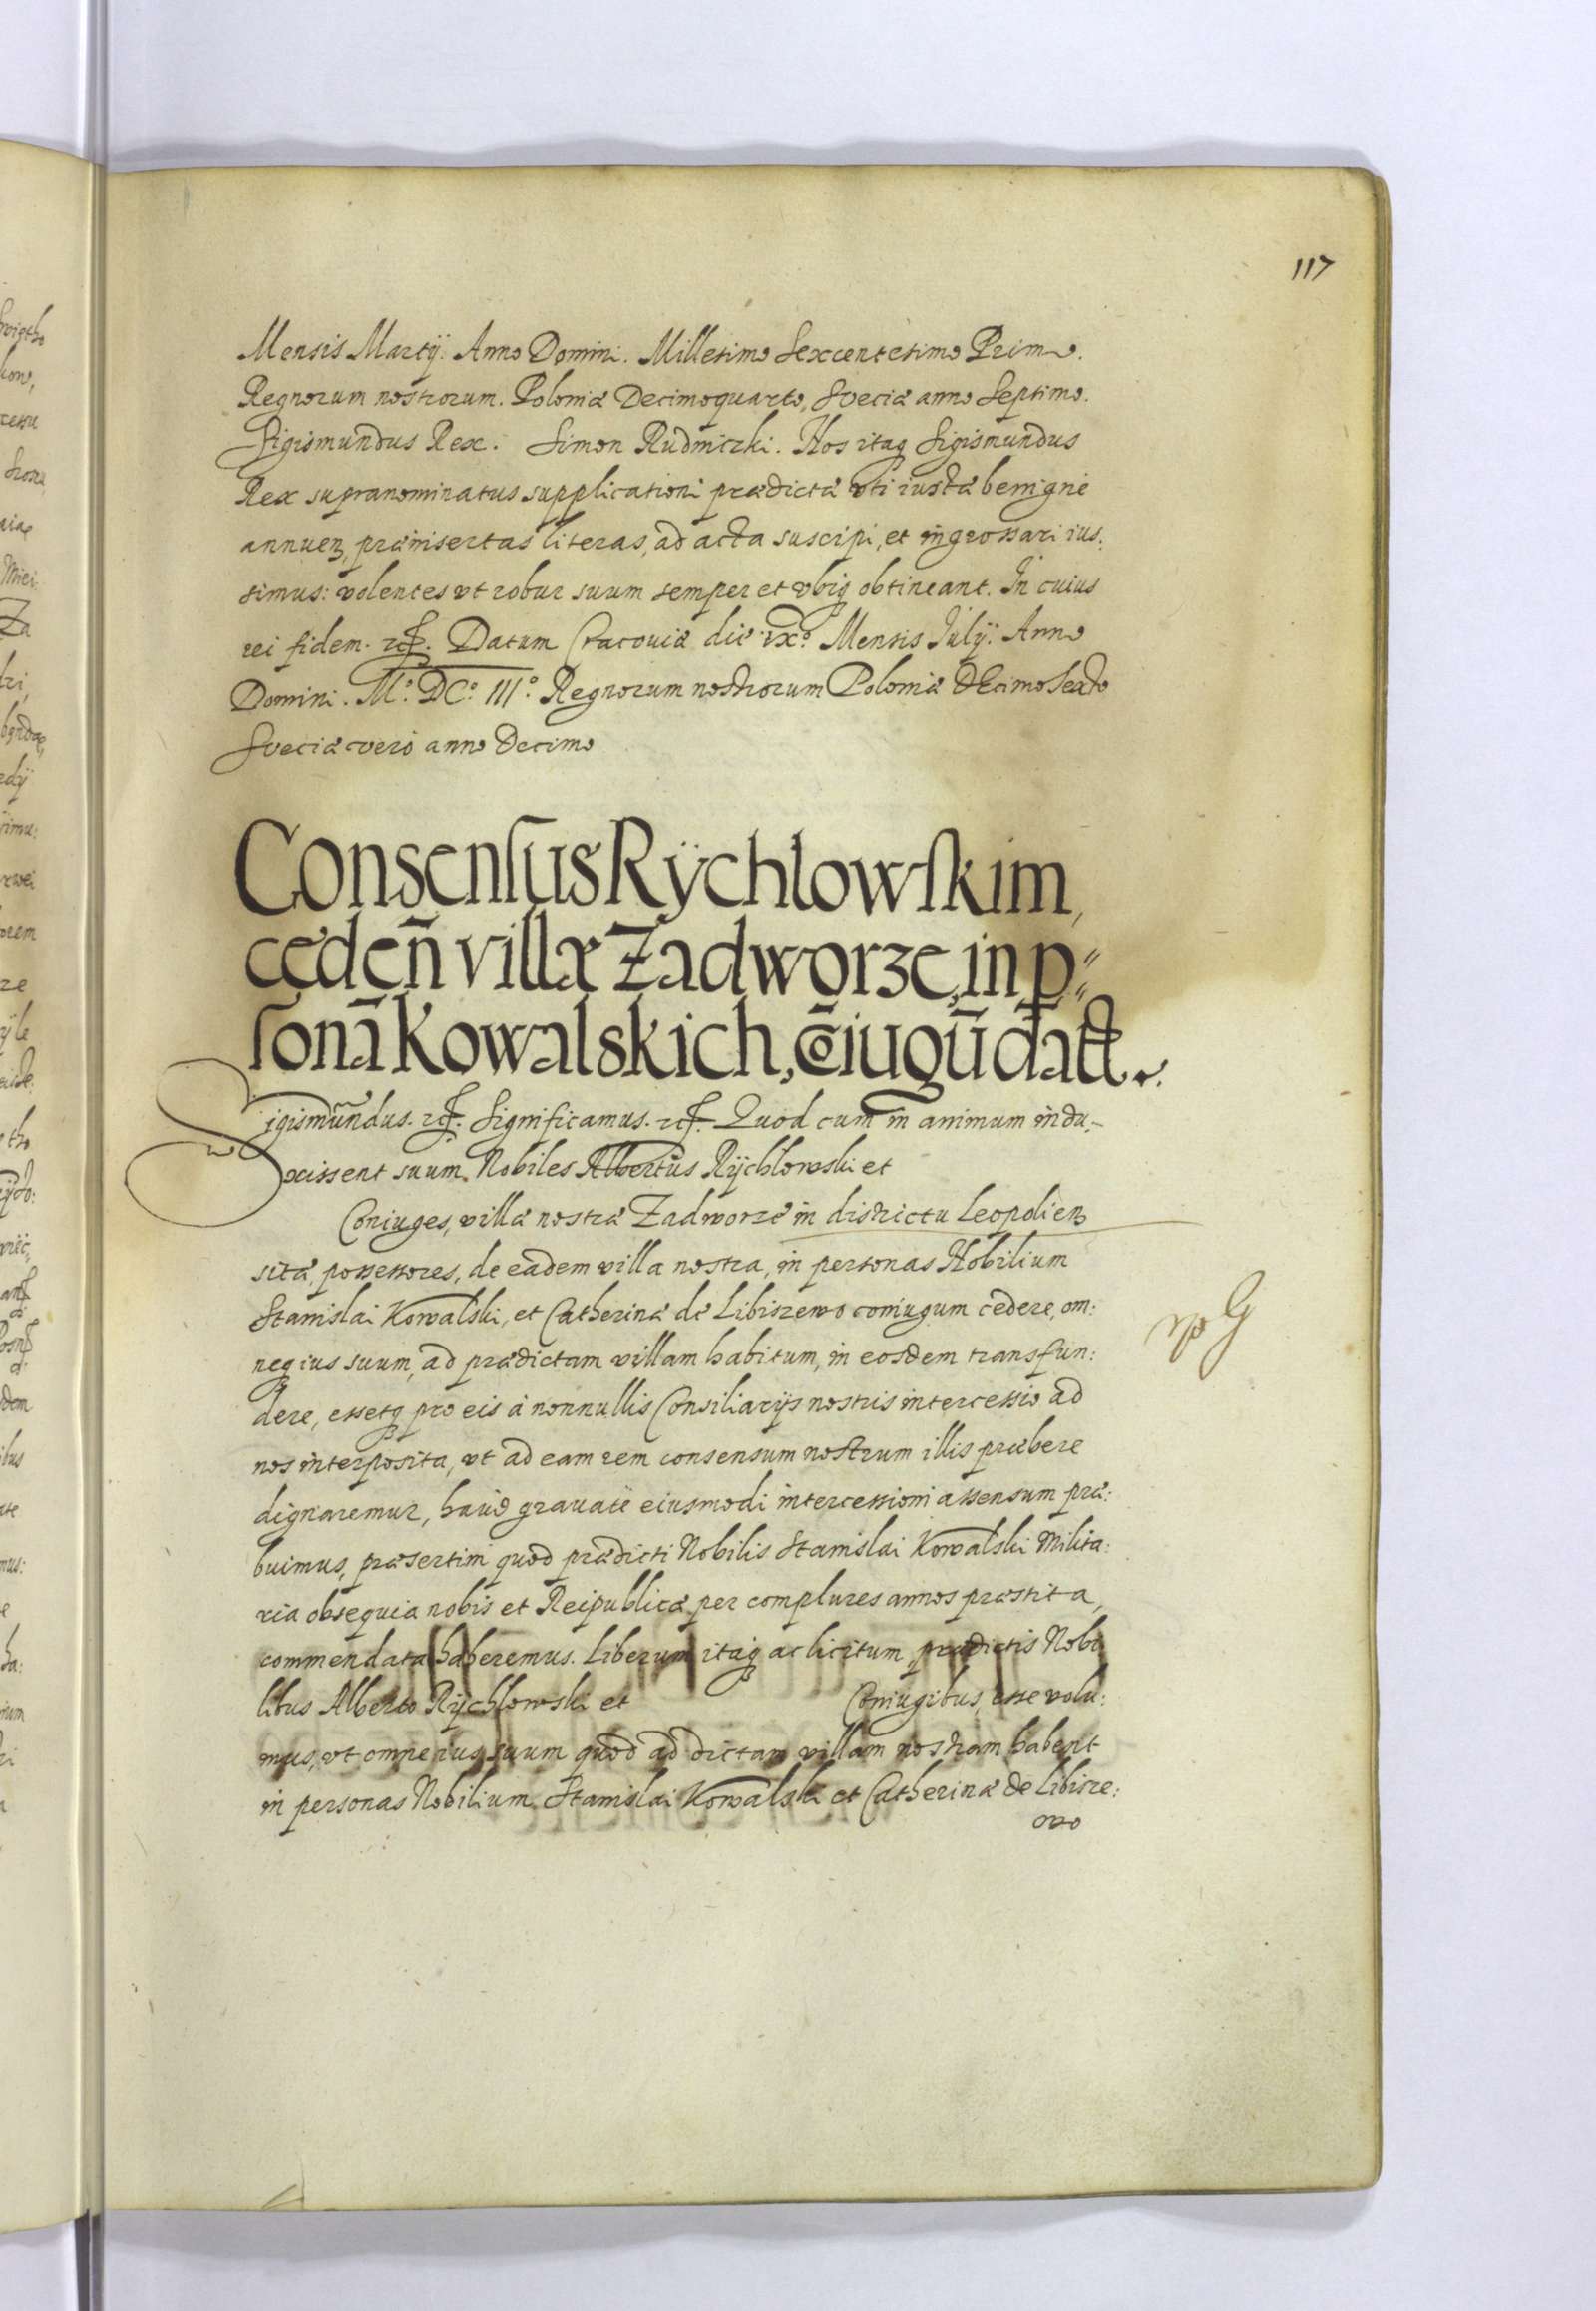 117
Mensis Martij. Anno Domini. Millesimo Sexcentesimo Primo.
Regnorum nostrorum. Poloniæ Decimoquarto, Sveciæ anno Septimo.
Sigismundus Rex. Simon Rudniczki. Nos itaq Sigismundus
Rex supranominatus supplicationi prædictæ vti iustæ benignè
annuen, præinsertas literas, ad acta suscipi, et ingrossari ius:
simus: volentes vt robur suum semper et vbiq obtineant. In cuius
rei fidem. etc. Datum Cracouiæ die ix.º Mensis Iulij. Anno
Domini. M.º DC.º III.º Regnorum nostrorum Poloniæ dEcimo Sexto
Sveciæ vero anno Decimo
Consensus Rÿchlowskim,
ceden̄ villæ Zadworze, in p̱=
sonā Kowalskich, cōiugū datt.
Sigismundus. etc. Significamus. etc. Quod cum in animum indu-
xissent suum. Nobiles Albertus Rÿchlowski et
Coniuges, villæ nostræ Zadworze in districtu Leopolien
sitæ, possessores, de eadem villa nostra, in personas Nobilium
Stanislai Kowalski, et Catherinæ de Libiszewo coniugum cedere, om:
neq ius suum, ad prædictam villam habitum, in eosdem transfun:
dere, essetq pro eis à nonnullis Consiliarijs nostris intercessio ad
nos interposita, vt ad eam rem consensum nostrum illis præbere
dignaremur, haud grauatè eiusmodi intercessioni assensum præ:
buimus, præsertim quod prædicti Nobilis Stanislai Kowalski Milita:
ria obsequia nobis et Reipublicæ per complures annos præstita,
commendata haberemus. Liberum itaq ac licitum prædictis Nobi
libus Alberto Rÿchlowski et Coniugibus, esse volu:
mus, vt omne ius suum quod ad dictam villam nostram habent
in personas Nobilium Stanislai Kowalski et Catherinæ de Libisze:
wo